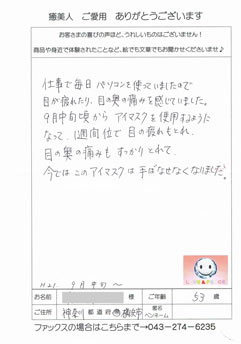 癒美人 ご愛用 ありがとうございます
お客さまの喜びの声ほど、うれしいものはございません!
商品や身近で体験されたことなど、絵でも文章でもお聞かせくださいませ♪
仕事で毎日パソコンを使っていましたので
目が疲れたり、目の奥の痛みを感じていました。
9月中旬頃からアイマスクを使用するように
なって、1週間位で目の疲れもとれ、
目の奥の痛みもすっかりとれて、
今ではこのアイマスクは手ばなせなくなりました。
H21. 9月中旬〜
お名前 様 ご年齢 53 歳
ご住所 神奈川 都道府県 横浜市 匿名 ペンネーム
ファックスの場合はこちらまで→043-274-6235